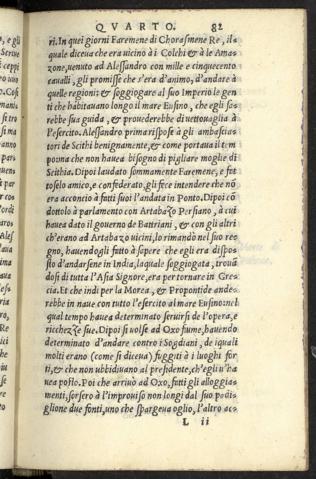 QVARTO. 82
ri. In quei giorni Faremene di Chorasmene Re, il-
quale diceua che era uicino à i Colchi & à le Ama-
zone, uenuto ad Alessandro con mille e cinquecento
caualli, gli promisse che s'era d'animo, d'andare à
quelle regioni: & soggiogare al suo Imperio le gen
ti che habitauano longo il mare Eusino, che egli sa-
rebbe sua guida, & prouederebe di uettouaglia à
l'esercito. Alessandro prima rispose à gli ambascia-
tori de Scithi benignamente, & come portaua il tem
po: ma che non hauea bisogno di pigliare moglie di
Scithia. Dipoi laudato sommamente Faremene, e fat
toselo amico, e confederato, gli fece intendere che nõ
era acconcio à fatti suoi l'andata in Ponto. Dipoi cõ
dottolo à parlamento con Artabazo Persiano, à cui
hauea dato il gouerno de Battriani, & con gli altri
ch'erano ad Artabazo uicini, lo rimandò nel suo re
gno, hauendogli fatto à sapere che egli era dispo-
sto d'andarsene in India, laquale soggiogata, troua
dosi di tutta l'Asia Signore, era per tornare in Gre-
cia. Et che indi per la Morea, & Propontide ande-
rebbe in naue con tutto l'esercito al mare Eusino: nel
qual tempo hauea determinato seruirsi de l'opera, e
ricchezze sue. Dipoi si uolse ad Oxo fiume, hauendo
determinato d'andare contro i Sogdiani, de iquali
molti erano (come si diceua) fuggiti à i luoghi for
ti, & che non ubbidiuano al presidente, ch'egli u'ha
uea posto. Poi che arriuò ad Oxo, fatti gli alloggia-
menti, sorsero à l'improuiso non longi dal suo padi-
glione due fonti, uno che spargeua oglio, l'altro ac-
L ii